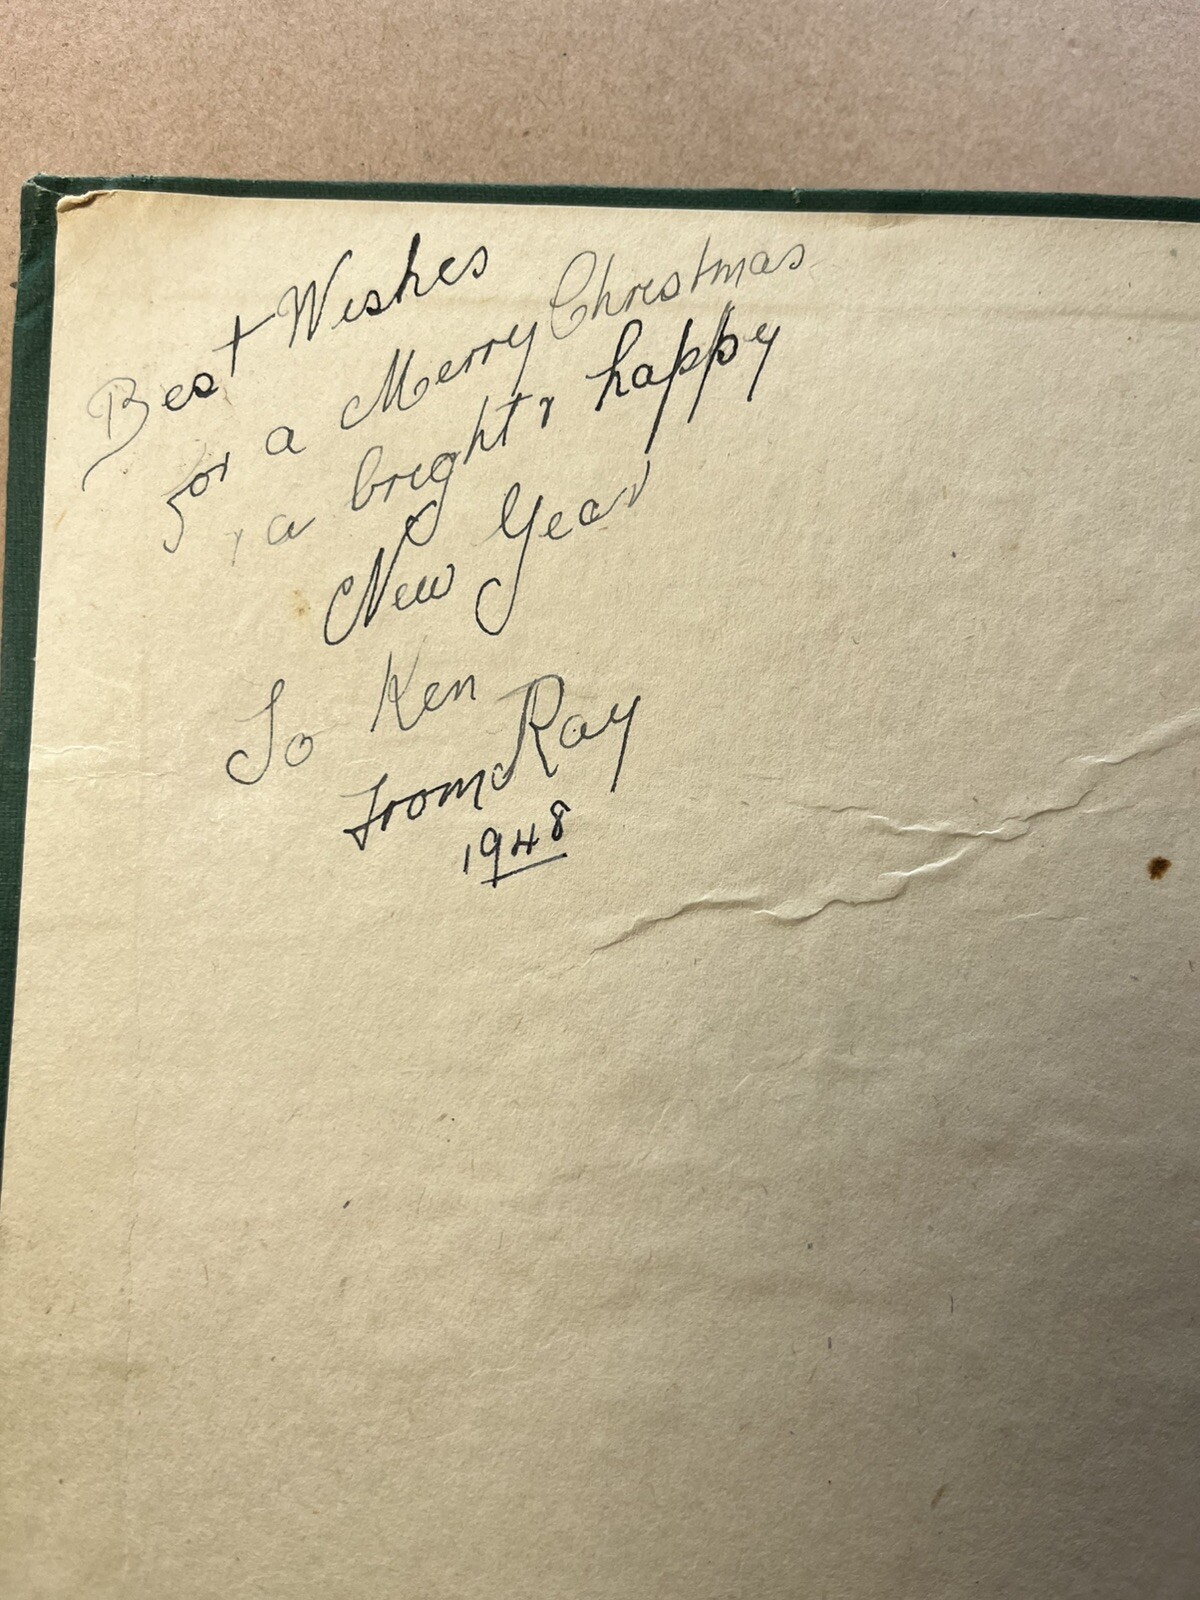 Best Wishes
for a Merry Christmas
& a bright & happy
New Year
To Ken
from Ray
1948